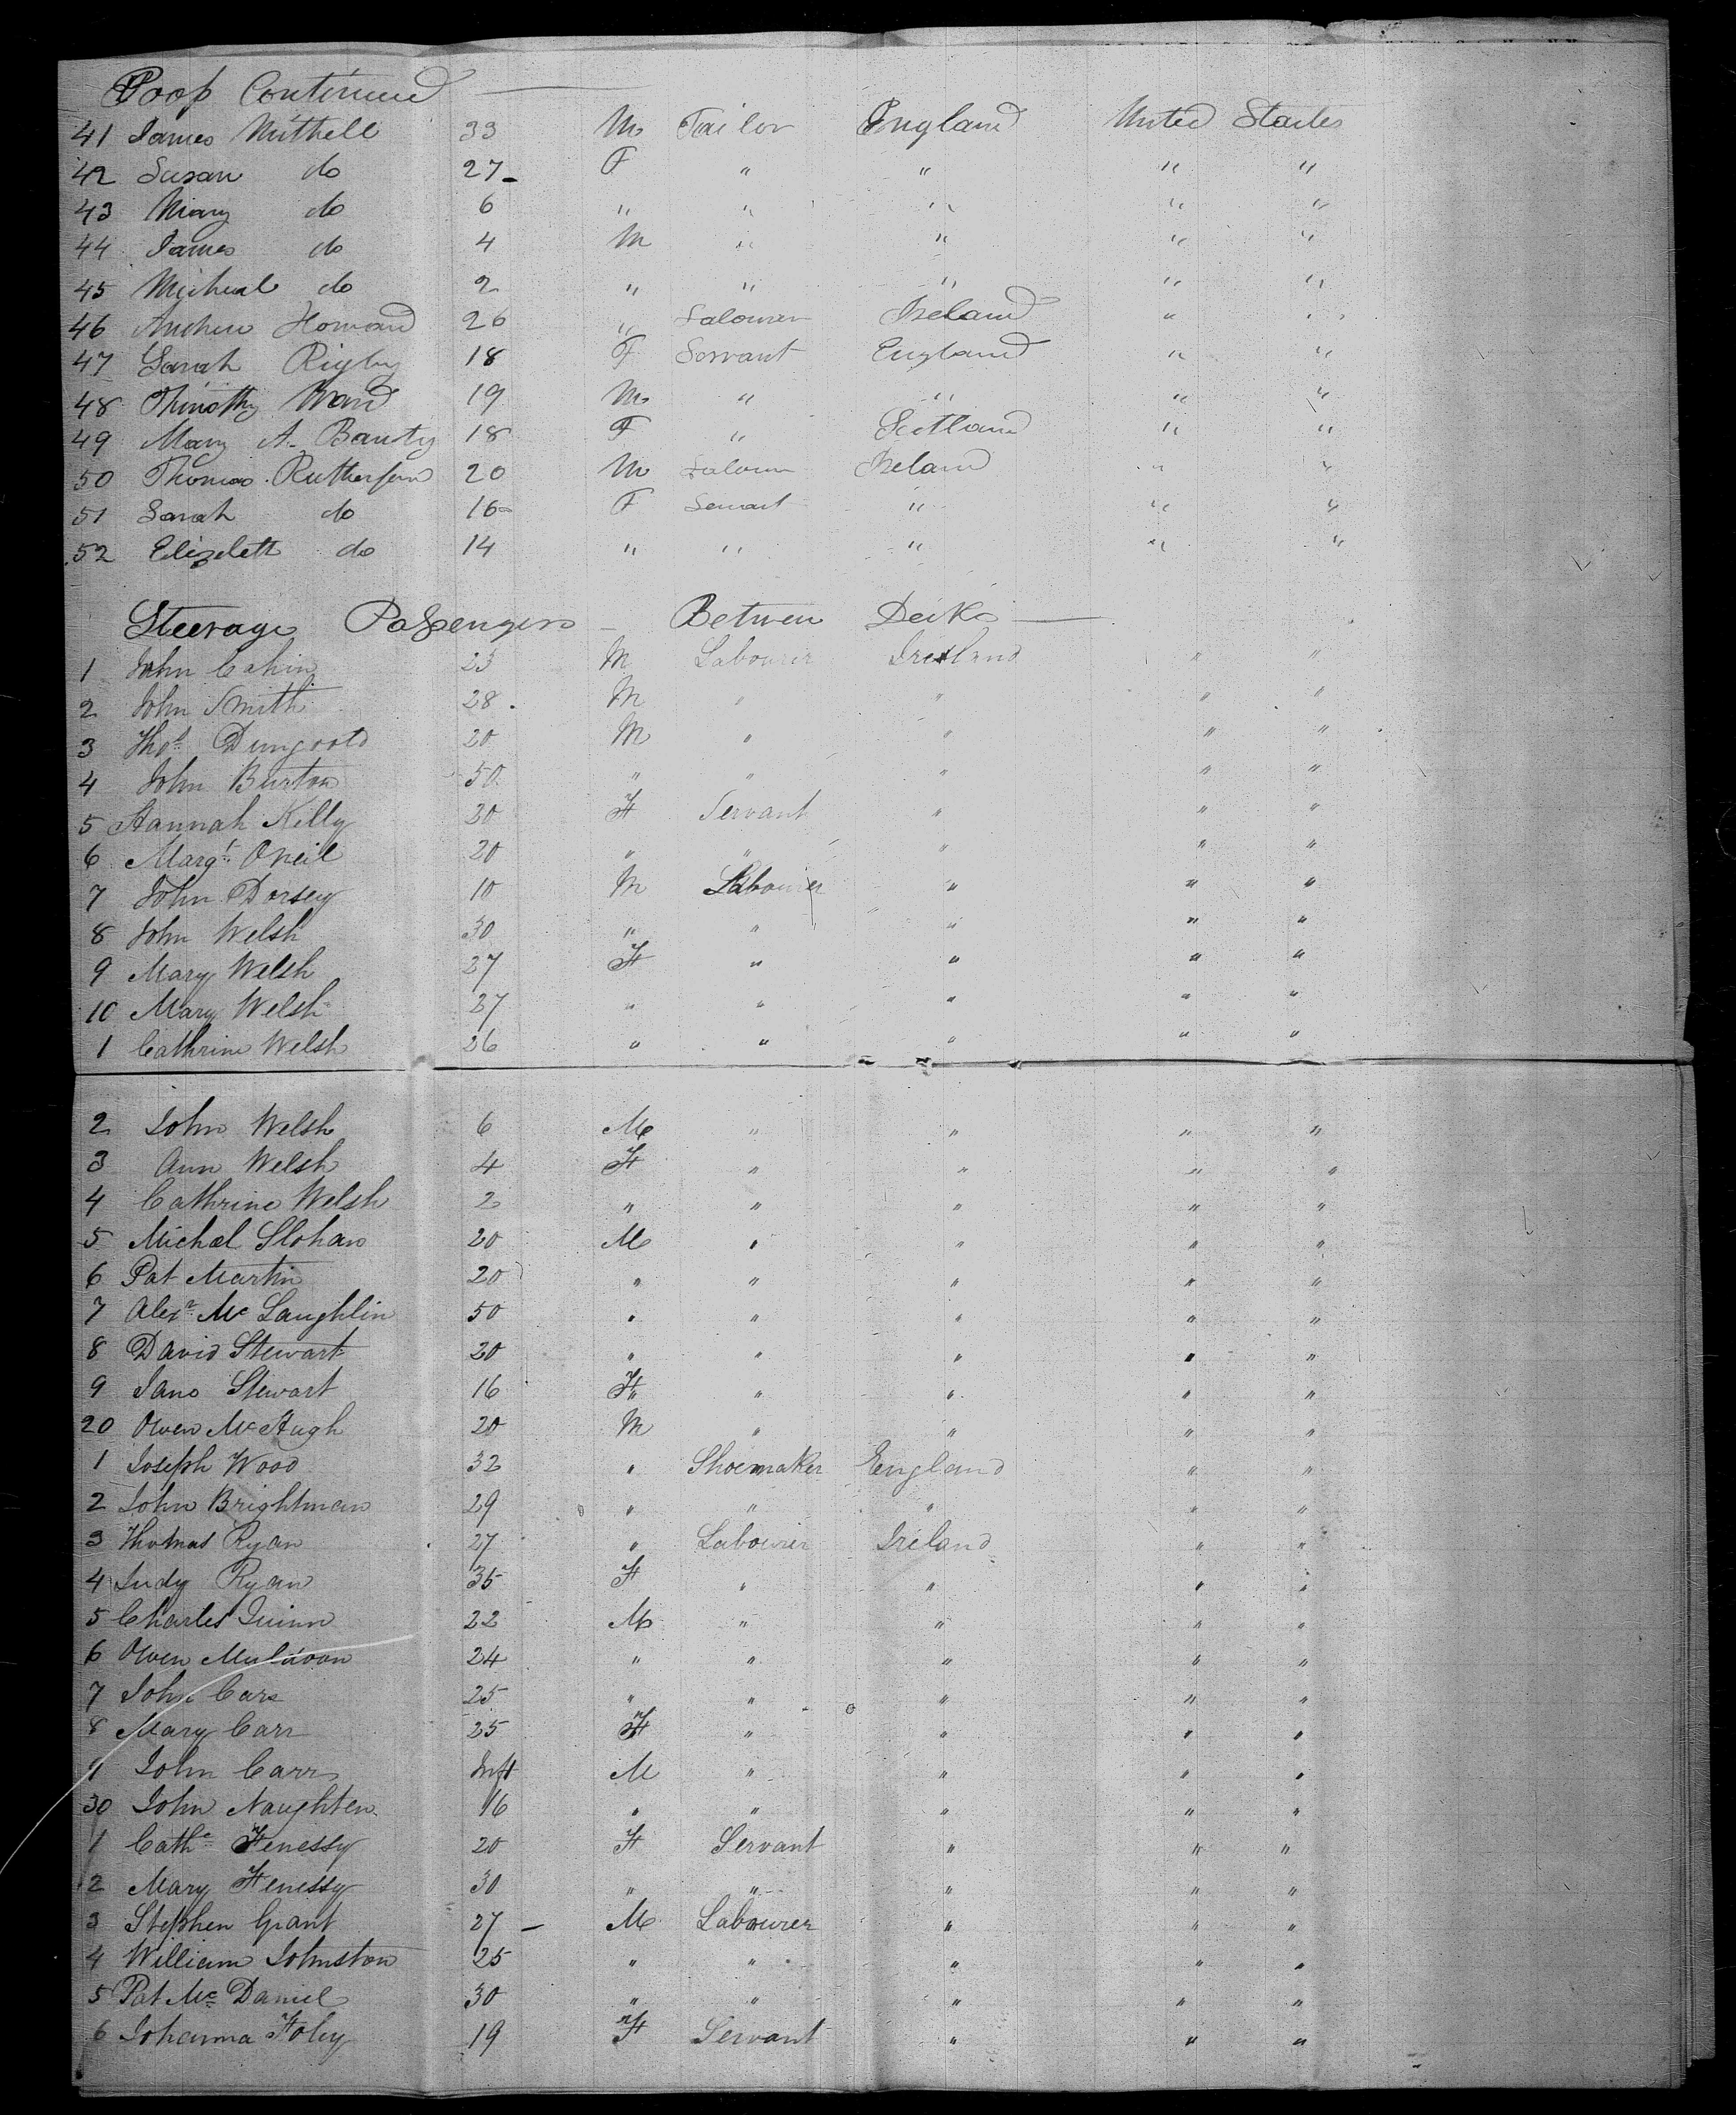 Poop Continued
41 James Mithell 33 M Tailor England United States
42 Susan do 27 F " " " "
43 Mary do 6 " " " " "
44 James do 4 M " " " "
45 Micheal do 2 " " " " "
46 Andrew Howard 26 " Labourer Ireland " "
47 Sarah Rigby 18 F Servant England " "
48 Thimothy Ward 19 M " " " "
49 Mary A. 18 F " Scotland " "
50 Thomas Rutherford 20 M Labourer Ireland " "
51 Sarah do 16 F Servant " " "
52 Elizabeth do 14 " " " " "
Steerage Passengers Between Decks
1 John Cahin 23 M Labourer Ireland " "
2 John Smith 28 M " " " "
3 Thos. 20 M " " " "
4 John Burton 50 " " " " "
5 Hannah Killy 20 F Servant " " "
6 Margt. Oneil 20 " " " " "
7 John Dorsey 10 M Labourer " " "
8 John Welsh 30 " " " " "
9 Mary Welsh 27 F " " " "
10 Mary Welsh 27 " " " " "
1 Cathrine Welsh 26 " " " " "
2 John Welsh 6 M " " " "
3 Ann Welsh 4 F " " " "
4 Cathrine Welsh 2 " " " " "
5 Michael Slohan 20 M " " " "
6 Pat Martin 20 " " " " "
7 Alexr. Mc Laughlin 50 " " " " "
8 David Stewart 20 " " " " "
9 Jane Stewart 16 F " " " "
20 Owen McHugh 20 M " " " "
1 Joseph Wood 32 " Shoemaker England " "
2 John Brightman 29 " " " " "
3 Thomas Ryan 27 " Labourer Ireland " "
4 Judy Ryan 35 F " " " "
5 Charles Quinn 22 M " " " "
6 Owen Muldoon 24 " " " " "
7 John Carr 25 " " " " "
8 Mary Carr 25 F " " " "
9 John Carr Inft M " " " "
30 John Naughten 16 " " " " "
1 Cathe. Fenessy 20 F Servant " " "
2 Mary Fenessy 30 " " " " "
3 Stephen Grant 27 M Labourer " " "
4 William Johnston 25 " " " " "
5 Pat Mc Daniel 30 " " " " "
6 Johanna Foley 19 F Servant " " "